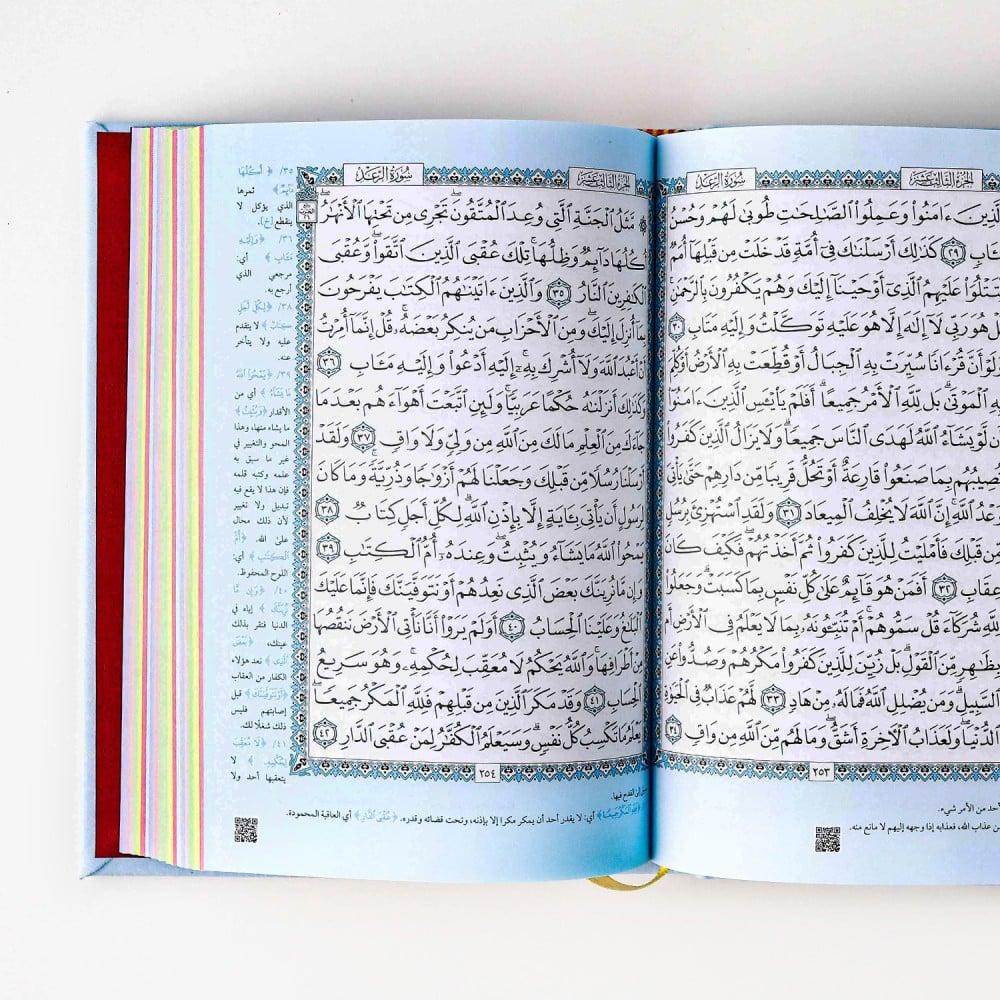 الجزء الثالث عشر
سُورَةُ الرَّعْدِ
ءَامَنُوا۟ وَعَمِلُوا۟ ٱلصَّٰلِحَٰتِ طُوبَىٰ لَهُمْ وَحُسْنُ
مَـَٔابٍ ٢٩ كَذَٰلِكَ أَرْسَلْنَٰكَ فِىٓ أُمَّةٍ قَدْ خَلَتْ مِن قَبْلِهَآ أُمَمٌ
لِّتَتْلُوَا۟ عَلَيْهِمُ ٱلَّذِىٓ أَوْحَيْنَآ إِلَيْكَ وَهُمْ يَكْفُرُونَ بِٱلرَّحْمَٰنِ
قُلْ هُوَ رَبِّى لَآ إِلَٰهَ إِلَّا هُوَ عَلَيْهِ تَوَكَّلْتُ وَإِلَيْهِ مَتَابِ ٣٠
وَلَوْ أَنَّ قُرْءَانًا سُيِّرَتْ بِهِ ٱلْجِبَالُ أَوْ قُطِّعَتْ بِهِ ٱلْأَرْضُ أَوْ كُلِّمَ
بِهِ ٱلْمَوْتَىٰ ۗ بَل لِّلَّهِ ٱلْأَمْرُ جَمِيعًا ۗ أَفَلَمْ يَا۟يْـَٔسِ ٱلَّذِينَ ءَامَنُوٓا۟
أَن لَّوْ يَشَآءُ ٱللَّهُ لَهَدَى ٱلنَّاسَ جَمِيعًا ۗ وَلَا يَزَالُ ٱلَّذِينَ كَفَرُوا۟
تُصِيبُهُم بِمَا صَنَعُوا۟ قَارِعَةٌ أَوْ تَحُلُّ قَرِيبًا مِّن دَارِهِمْ حَتَّىٰ يَأْتِىَ
وَعْدُ ٱللَّهِ ۚ إِنَّ ٱللَّهَ لَا يُخْلِفُ ٱلْمِيعَادَ ٣١ وَلَقَدِ ٱسْتُهْزِئَ بِرُسُلٍ
مِّن قَبْلِكَ فَأَمْلَيْتُ لِلَّذِينَ كَفَرُوا۟ ثُمَّ أَخَذْتُهُمْ ۖ فَكَيْفَ كَانَ
عِقَابِ ٣٢ أَفَمَنْ هُوَ قَآئِمٌ عَلَىٰ كُلِّ نَفْسٍۭ بِمَا كَسَبَتْ ۗ وَجَعَلُوا۟
لِلَّهِ شُرَكَآءَ قُلْ سَمُّوهُمْ ۚ أَمْ تُنَبِّـُٔونَهُۥ بِمَا لَا يَعْلَمُ فِى ٱلْأَرْضِ أَم
بِظَٰهِرٍ مِّنَ ٱلْقَوْلِ ۗ بَلْ زُيِّنَ لِلَّذِينَ كَفَرُوا۟ مَكْرُهُمْ وَصُدُّوا۟ عَنِ
ٱلسَّبِيلِ ۗ وَمَن يُضْلِلِ ٱللَّهُ فَمَا لَهُۥ مِنْ هَادٍ ٣٣ لَّهُمْ عَذَابٌ فِى ٱلْحَيَوٰةِ
ٱلدُّنْيَا ۖ وَلَعَذَابُ ٱلْـَٔاخِرَةِ أَشَقُّ ۖ وَمَا لَهُم مِّنَ ٱللَّهِ مِن وَاقٍ ٣٤
٢٥٣
أحد من الأمر شيء.
عذاب الله، فعذابه إذا وجهه إليهم لا مانع منه.
الجزء الثالث عشر
سُورَةُ الرَّعْدِ
۞ مَّثَلُ ٱلْجَنَّةِ ٱلَّتِى وُعِدَ ٱلْمُتَّقُونَ ۖ تَجْرِى مِن تَحْتِهَا ٱلْأَنْهَٰرُ ۖ
أُكُلُهَا دَآئِمٌ وَظِلُّهَا ۚ تِلْكَ عُقْبَى ٱلَّذِينَ ٱتَّقَوا۟ ۖ وَّعُقْبَى
ٱلْكَٰفِرِينَ ٱلنَّارُ ٣٥ وَٱلَّذِينَ ءَاتَيْنَٰهُمُ ٱلْكِتَٰبَ يَفْرَحُونَ
بِمَآ أُنزِلَ إِلَيْكَ ۖ وَمِنَ ٱلْأَحْزَابِ مَن يُنكِرُ بَعْضَهُۥ ۚ قُلْ إِنَّمَآ أُمِرْتُ
أَنْ أَعْبُدَ ٱللَّهَ وَلَآ أُشْرِكَ بِهِۦٓ ۚ إِلَيْهِ أَدْعُوا۟ وَإِلَيْهِ مَـَٔابِ ٣٦
وَكَذَٰلِكَ أَنزَلْنَٰهُ حُكْمًا عَرَبِيًّا ۚ وَلَئِنِ ٱتَّبَعْتَ أَهْوَآءَهُم بَعْدَ مَا
جَآءَكَ مِنَ ٱلْعِلْمِ مَا لَكَ مِنَ ٱللَّهِ مِن وَلِىٍّ وَلَا وَاقٍ ٣٧ وَلَقَدْ
أَرْسَلْنَا رُسُلًا مِّن قَبْلِكَ وَجَعَلْنَا لَهُمْ أَزْوَٰجًا وَذُرِّيَّةً ۚ وَمَا كَانَ
لِرَسُولٍ أَن يَأْتِىَ بِـَٔايَةٍ إِلَّا بِإِذْنِ ٱللَّهِ ۗ لِكُلِّ أَجَلٍ كِتَابٌ ٣٨
يَمْحُوا۟ ٱللَّهُ مَا يَشَآءُ وَيُثْبِتُ ۖ وَعِندَهُۥٓ أُمُّ ٱلْكِتَٰبِ ٣٩
وَإِن مَّا نُرِيَنَّكَ بَعْضَ ٱلَّذِى نَعِدُهُمْ أَوْ نَتَوَفَّيَنَّكَ فَإِنَّمَا عَلَيْكَ
ٱلْبَلَٰغُ وَعَلَيْنَا ٱلْحِسَابُ ٤٠ أَوَلَمْ يَرَوْا۟ أَنَّا نَأْتِى ٱلْأَرْضَ نَنقُصُهَا
مِنْ أَطْرَافِهَا ۚ وَٱللَّهُ يَحْكُمُ لَا مُعَقِّبَ لِحُكْمِهِۦ ۚ وَهُوَ سَرِيعُ
ٱلْحِسَابِ ٤١ وَقَدْ مَكَرَ ٱلَّذِينَ مِن قَبْلِهِمْ فَلِلَّهِ ٱلْمَكْرُ جَمِيعًا ۖ
يَعْلَمُ مَا تَكْسِبُ كُلُّ نَفْسٍ ۗ وَسَيَعْلَمُ ٱلْكُفَّٰرُ لِمَنْ عُقْبَى ٱلدَّارِ ٤٢
٢٥٤
٣٥/ ﴿أُكُلُهَا
دَآئِمٌ﴾ ثمرها
الذي يؤكل لا
ينقطع [خ].
٣٦/ ﴿وَإِلَيْهِ
مَـَٔابِ﴾ أي:
مرجعي الذي
أرجع به.
٣٨/ ﴿لِكُلِّ أَجَلٍ
كِتَابٌ﴾ لا يتقدم
عليه ولا يتأخر
عنه.
٣٩/ ﴿يَمْحُوا۟ ٱللَّهُ
مَا يَشَآءُ﴾ أي من
الأقدار ﴿وَيُثْبِتُ﴾
ما يشاء منها، وهذا
المحو والتغيير في
غير ما سبق به
علمه وكتبه قلمه
فإن هذا لا يقع فيه
تبديل ولا تغيير
لأن ذلك محال
على الله. ﴿أُمُّ
ٱلْكِتَٰبِ﴾ أي:
اللوح المحفوظ.
٤٠/ ﴿وَإِن مَّا
نُرِيَنَّكَ﴾ إياه في
الدنيا فتقر بذلك
عينك، ﴿بَعْضَ
ٱلَّذِى﴾ نعد هؤلاء
الكفار من العقاب
﴿أَوْ نَتَوَفَّيَنَّكَ﴾ قبل
إصابتهم فليس
ذلك شغلًا لك.
٤١/ ﴿لَا مُعَقِّبَ
لِحُكْمِهِۦ﴾ لا
يتعقبها أحد ولا
القدح فيها.
﴿فَلِلَّهِ ٱلْمَكْرُ جَمِيعًا﴾ أي: لا يقدر أحد أن يمكر مكرا إلا بإذنه، وتحت قضائه وقدره. ﴿عُقْبَى ٱلدَّارِ﴾ أي العاقبة المحمودة.